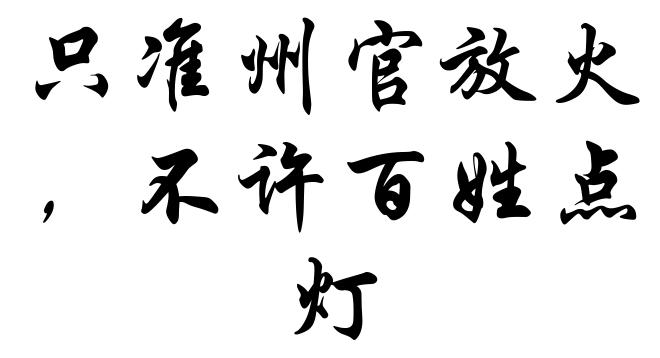 只准州官放火
，不许百姓点
灯